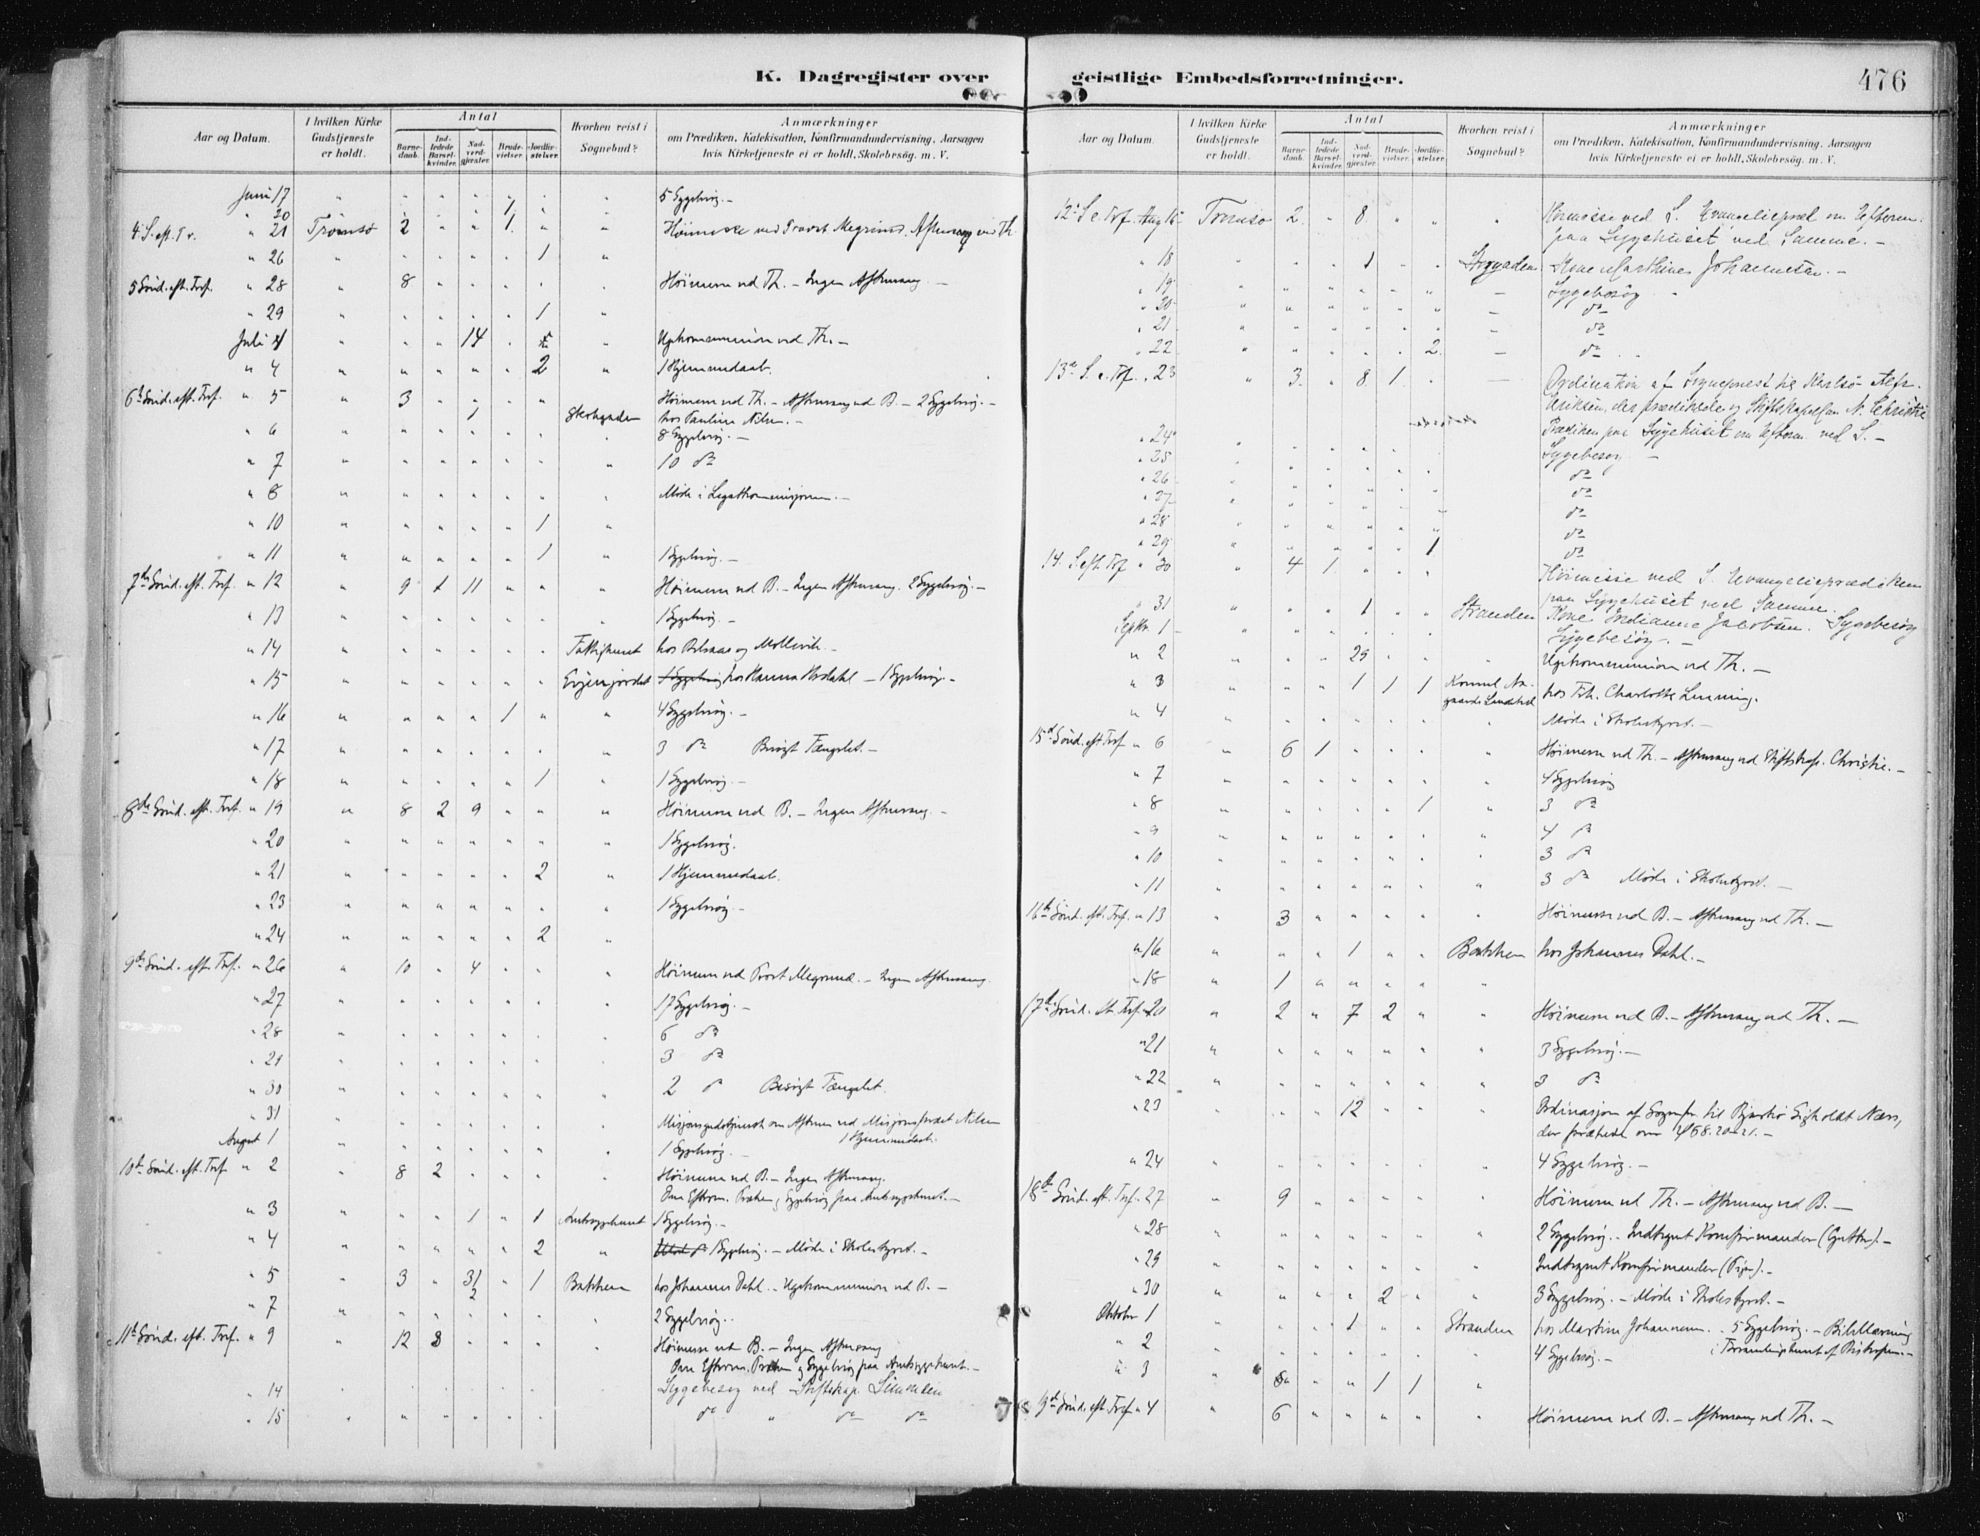 K. Dagregister over geistlige Embedsforretninger. 476
Aar og Datum. I hvilken Kirke Gudstjeneste er holdt. Antal Barne-daab. Ind-ledede Barsel-kvinder. Nad-verd-gjester. Brude-vielser. Jordfæ-stelser. Hvorhen reist i Sognebud? Anmærkninger om Prædiken, Katekisation, Konfirmandundervisning, Aarsagen hvis Kirketjeneste ei er holdt, Skolebesøg, m. V.
Juni 17 " " " " 1 " " 5 Sygebesøg. –
" 20 " " " " 1 " "
4 S. eft. Tr. " 21 Tromsø 2 " " 1 " " Høimesse ved Provst
" 26 " " " " " 1 "
5 Sønd. eft. Tref. " 28 " 8 " " " " " Høimesse ved Th. – Ingen Aftensang. –
" 29 " " " " " 1 "
Juli " " " 14 " " Ugekommunion ved Th. –
" 4 " " " " " 2 " 1 Hjemmedaab.
6te Sønd. eft. Tref. " 5 " 3 " " " " Høimesse ved Th. – Aftensang ved B. – 2 Sygebesøg. –
1 hos Pauline Nilsen. –
" 6 " " " " " " " 8 Sygebesøg. –
" 7 " " " " " " " 10 do
" 8 " " " " " " " Møde i Legatkommisjonen. –
" 10 " " " " " 1 "
" 11 " " " " " 1 " 1 Sygebesøg. –
7de Sønd. eft. Tref. " 12 " 9 1 11 " " " Høimesse ved B. – Ingen Aftensang. 2 Sygebesøg. –
" 13 " " " " " " " 1 Sygebesøg. –
" 14 " " " " " " Fattighuset hos og Mollevik. –
" 15 " " " " " " hos Hanna – 1 Sygebesøg. –
" 16 " " " " 1 " " 4 Sygebesøg. –
" 17 " " " " " " " 3 do Besøgt Fængslet. –
" 18 " " " " " 1 " 1 Sygebesøg. –
8de Sønd. eft. Tref. " 19 " 8 2 9 " " " Høimesse ved B. – Ingen Aftensang. –
" 20 " " " " " " " 1 Sygebesøg.
" 21 " " " " " 2 " 1 Hjemmedaab.
" 23 " " " " " " " 1 Sygebesøg. –
" 24 " " " " " 2 "
9de Sønd. eft. Tref. " 26 " 10 " 4 " " " Høimesse ved Provst – Ingen Aftensang.
" 27 " " " " " " " 17 Sygebesøg. –
" 28 " " " " " " " 6 do
" 29 " " " " " " " 3 do
" 30 " " " " " " " 2 do Besøgt Fængslet.
" 31 " " " " " " " Misjonsgudstjeneste om Aftenen ved Misjonsprest Nilsen
August 1 " " " " " " " 1 Sygebesøg. – 1 Hjemmedaab.
10de Sønd. eft. Tref. " 2 " 8 2 " " " " Høimesse ved B. – Ingen Aftensang.
Om Efterm. Præken og Sygebesøg paa Amtssygehuset. –
" 3 " " " 1 " 1 Amtssygehuset 1 Sygebesøg. –
" 4 " " " " " 2 " 1 Sygebesøg. – Møde i Skolestyret. –
" 5 " 3 " 31 " 1 Bakken hos Johannes Dahl. – Ugekommunion ved B. –
" 7 " " " " " " " 2 Sygebesøg. –
11te Sønd. eft. Tref. " 9 " 12 8 " " " " Høimesse ved B. – Ingen Aftensang
Om Efterm. Præken og Sygebesøg paa Amtssygehuset. –
" 14 Sygebesøg ved Stiftskap.
" 15 " " " " " " do " do do
Aar og Datum. I hvilken Kirke Gudstjeneste er holdt. Antal Barne-daab. Ind-ledede Barsel-kvinder. Nad-verd-gjester. Brude-vielser. Jordfæ-stelser. Hvorhen reist i Sognebud? Anmærkninger om Prædiken, Katekisation, Konfirmandundervisning, Aarsagen hvis Kirketjeneste ei er holdt, Skolebesøg, m. V.
12te S. e. Tref. Aug 16 Tromsø 2 " 8 " " " Høimesse ved S. Evangeliepræd. om Efterm.
paa Sygehuset ved Samme. –
" 18 " " " 1 " " Kone Marthine Johannesen. –
" 19 " " " " " " – Sygebesøg
" 20 " " " " " " – do
" 21 " " " " " " – do
" 22 " " " " " 2 – do
13de S. e. Tref. " 23 " 3 " 8 1 " – Ordination af Sognepræst til Karlsø
Eriksen, der prædikede og Stiftskapellan N. Christie
Prædiken paa Sygehuset om Efterm. ved S. –
" 24 Sygebesøg –
" 25 do
" 26 do
" 27 do
" 28 do
" 29 1 do
14. S. eft. Tref. " 30 " 4 1 " " " Høimesse ved S. Evangelieprædiken
paa Sygehuset ved Samme.
" 31 " " " 1 " " Stranden Kone Jacobsen. Sygebesøg
Septbr. 1 Sygebesøg. –
" 2 " " " 29 " " " Ugekommunion ved Th. –
" 3 " " " 1 1 1 hos Frk. Charlotte
" 4 " " " " " " " Møde i Skolestyret. –
15de Sønd. eft. Tref. " 6 " 6 1 " " " " Høimesse ved Th. – Aftensang ved Stiftskap. Christie. –
" 7 " " " " " " " 4 Sygebesøg
" 8 " " " " " 1 " 3 do
" 9 " " " " " " " 4 do
" 10 " " " " " " " 3 do
" 11 " " " " " " " 3 do Møde i Skolestyret. –
16de Sønd. eft. Tref. " 13 " 3 " " " " " Høimesse ved B. – Aftensang ved Th. –
" 16 " " " 1 " " Bakken hos Johannes Dahl. –
" 18 " 1 " " " " "
17de Sønd. eft. Tref. 20 " 2 " 7 2 " " Høimesse ved B. – Aftensang ved Th. –
" 21 " " " " " " " 3 Sygebesøg. –
" 22 " " " " " " " 3 do
" 23 " " " 12 " " " Ordinasjon af Sognepr. til Bjarkø Næss,
der prækede over 20–21. –
" 24 " " " " " " " 4 Sygebesøg. –
18de Sønd. eft. Tref. 27 " 9 " " " " " Høimesse ved Th. – Aftensang ved B. –
" 28 " " " " " " " 2 Sygebesøg. – Indtegnet Konfirmander (Gutter). –
" 29 " " " " " " " Indtegnet Konfirmander (Piger). –
" 30 " " " " 2 " " 3 Sygebesøg. – Møde i Skolestyret. –
Oktober 1 " " " 1 " " Stranden hos Martine Johannesen. 5 Sygebesøg. – Bibellæsning
" 2 " " " " " " " 4 Sygebesøg. – i af Biskopen. –
" 3 " " " 1 1 "
9de Sønd. eft. Tref. " 4 " 6 " " " " " Høimesse ved B. – Aftensang ved Th. –